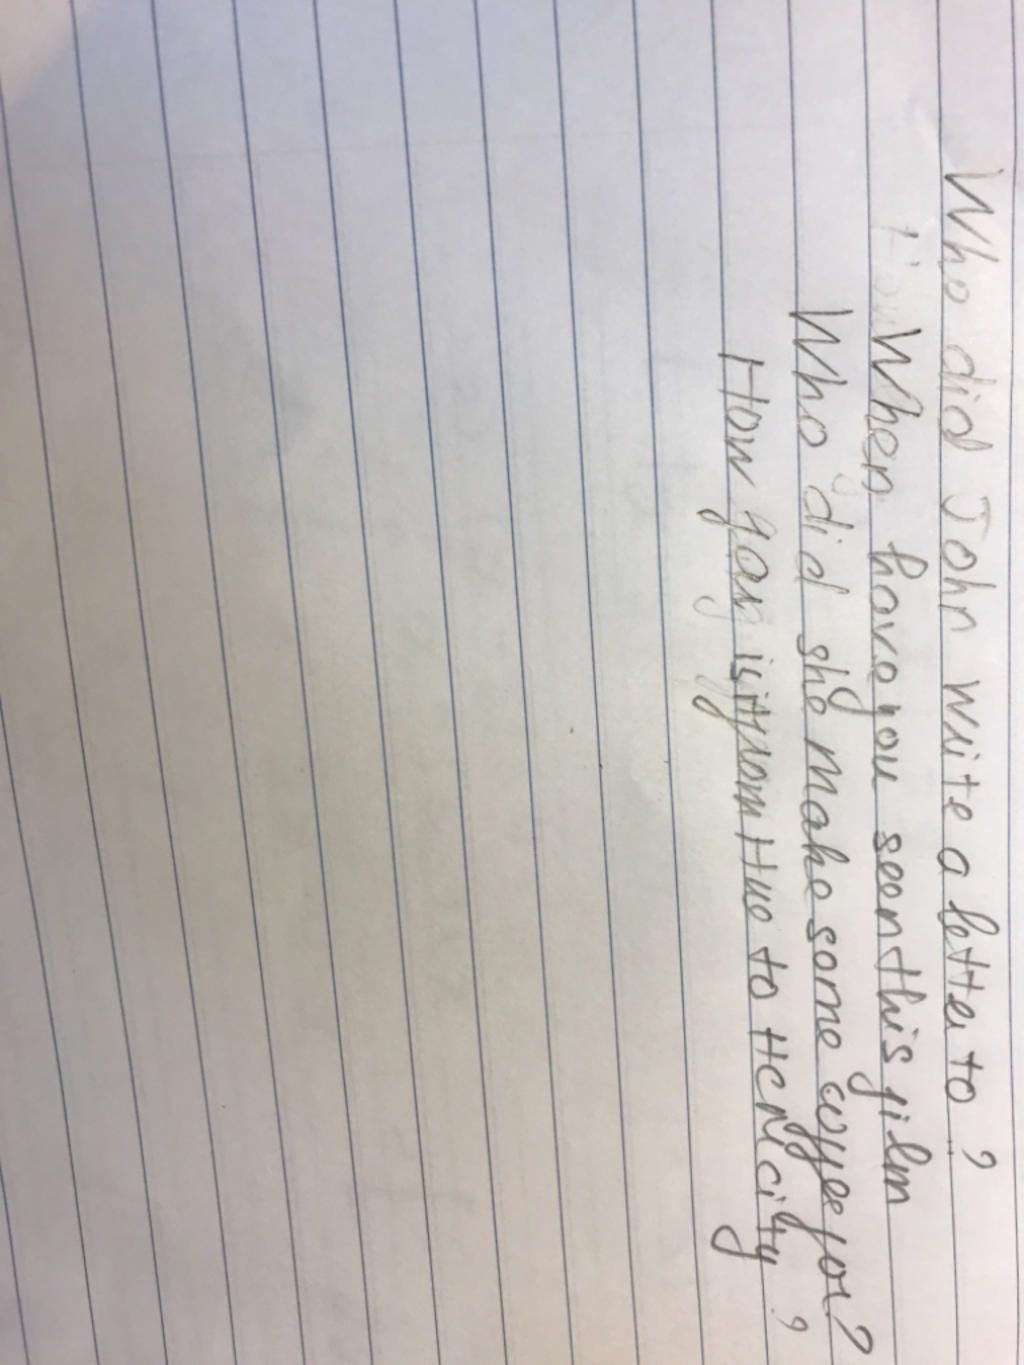 Who did John write a letter to?
When have you seen this film
Who did she make some coffee for?
How far is it from the to the city?